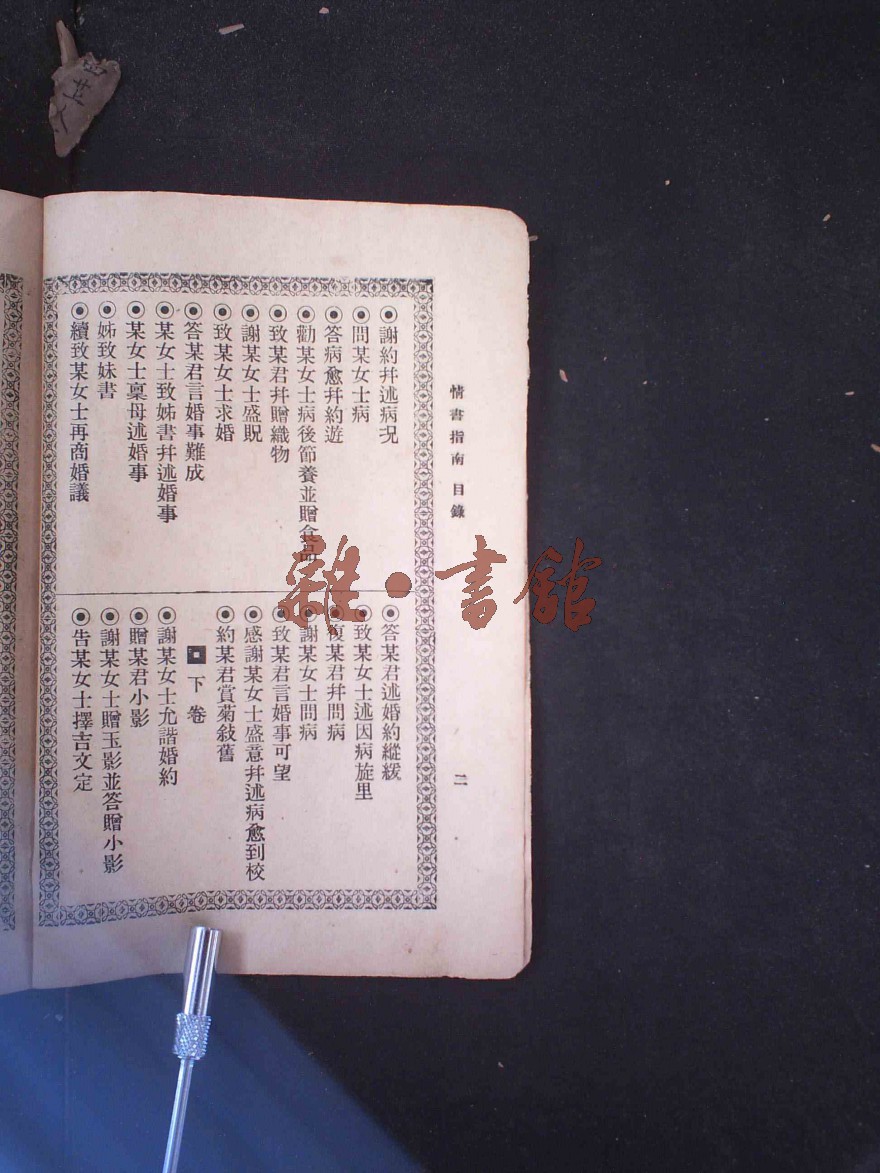 情書指南 目錄
二
◉謝約幷述病况
◉問某女士病
◉答病愈幷約遊
◉勸某女士病後節養並贈食品
◉致某君幷贈織物
◉謝某女士盛貺
◉致某女士求婚
◉答某君言婚事難成
◉某女士致姊書幷述婚事
◉某女士稟母述婚事
◉姊致妹書
◉續致某女士再商婚議
◉答某君述婚約緃緩
◉致某女士述因病旋里
◉復某君幷問病
◉謝某女士問病
◉致某君言婚事可望
◉感謝某女士盛意幷述病愈到校
◉約某君賞菊敍舊
下卷
◉謝某女士允諧婚約
◉贈某君小影
◉謝某女士贈玉影並答贈小影
◉告某女士擇吉文定
雜·書館